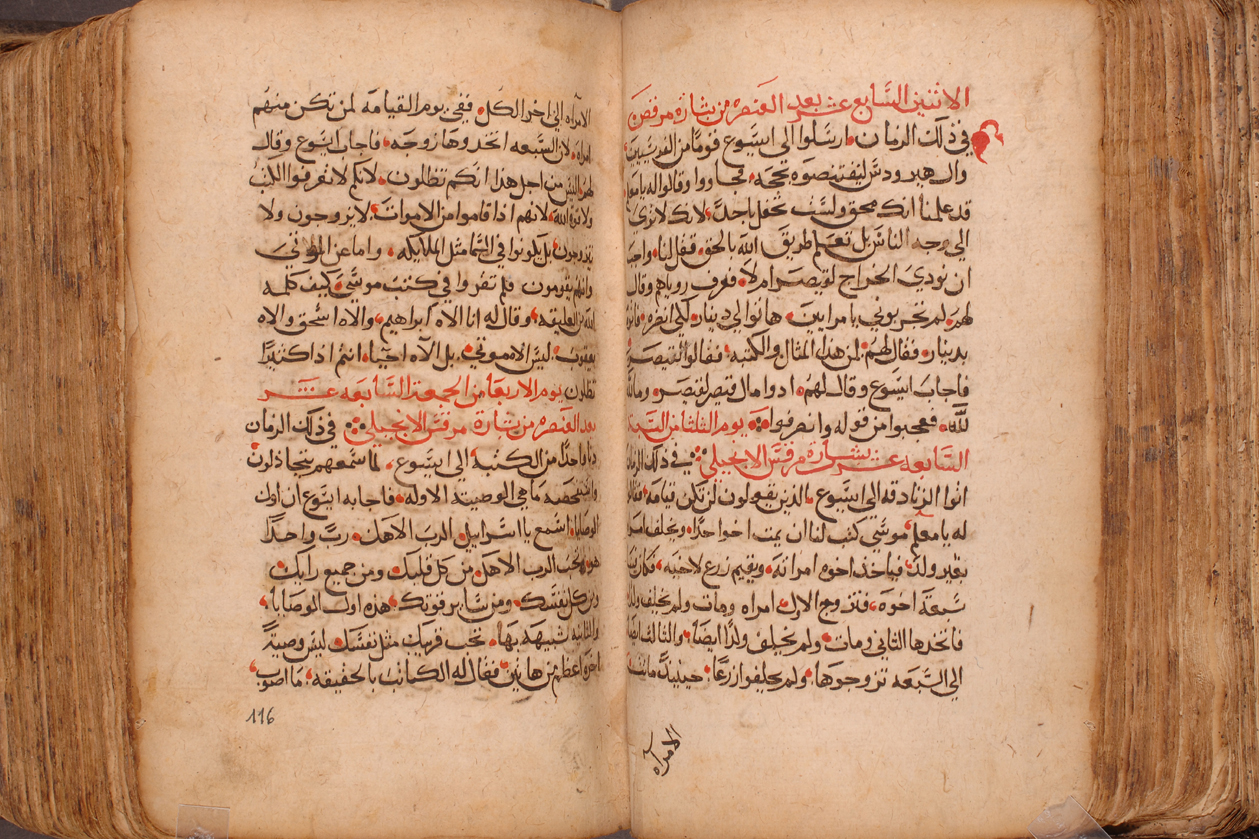 الاثنين السابع عشر بعد العنصره من بشارة مرقص
في ذلك الزمان ارسلوا الى ايسوع قومًا من الفريسيين
وال هيرودس ليقتنصوه بحجه فجاووا وقالوا له يا معلم
قد علمنا انك محق وليس تحفل باحد لانك لا ترى
الى وجه الناس بل تعلم طريق الله بالحق فقل لنا واجب
ان نودي الخراج لقيصر ام لا فعرف رياهم وقال
لهم لم تجربوني يا مرايين هاتوا لي دينار لكي انظره فاتوا
بدينار فقال لهم لمن هذا المثال والكتبه فقالوا لقيصر
فاجاب ايسوع وقال لهم ادوا مال قيصر لقيصر ومالله
لله فعجبوا من قوله وانصرفوا يوم الثلثا من السبه
السابعه عشر بشارة مرقس الانجيلي في ذلك الزمان
اتوا الزنادقه الى ايسوع الذين يقولون لن تكن قيامه فقالوا
له يا معلم موسي كتب لنا ان يمت اخوا حدا ويخلف امراه
بغير ولد فياخذ اخوه امراته ويقيم زرع لاخيه فكان
سبعة اخوه فتزوج الاول امراه ومات ولم يخلف ولدا
فاتخدها الثاني ومات ولم يخلف ولدًا ايضًا والثالث ايضا
الي السبعه تزوجوها ولم يخلفوا زرعًا حينيذ ماتت
الامراه
الامراه الي اخر الكل ففي يوم القيامه لمن تكن منهم
امراه لان السبعه اتخدوها زوجه فاجاب ايسوع وقال
لهم اليس من اجل هذا انكم تظلون لانكم لا تعرفوا الكتب
ولا قوة الله لانهم اذا قاموا من الاموات لا يزوجون ولا
يتزوجون بل يكونوا في السما مثل الملايكه واما عن الموتي
وانهم يقومون فلم تقروا في كتب موسي كيف كلمه
الله من العليقه وقال له انا الاه ابراهيم والاه اسحق والاه
يعقوب ليس الاه موتي بل الاه احيا انتم اذا كثيرًا
تظلون يوم الاربعا من الجمعة السابعه عشر
بعد العنصره من بشارة مرقس الانجيلي في ذلك الزمان
دنا واحدًا من الكتبه الي ايسوع لما سمعهم يتجادلون
وامتحنه ما هي الوصية الاوله فاجابه ايسوع ان اول
الوصايا اسمع يا اسراييل الرب الاهك رب واحدًا
هو تحب الرب الاهك من كل قلبك ومن جميع رايك
ومن كل نفسك ومن ساير قوتك هذه اول الوصايا
والثانيه شبيهه بها تحب قريبك مثل نفسك ليس وصيةً
اخرة اعظم من هاتين فقال له الكاتب بالحقيقه ما اصوب
116